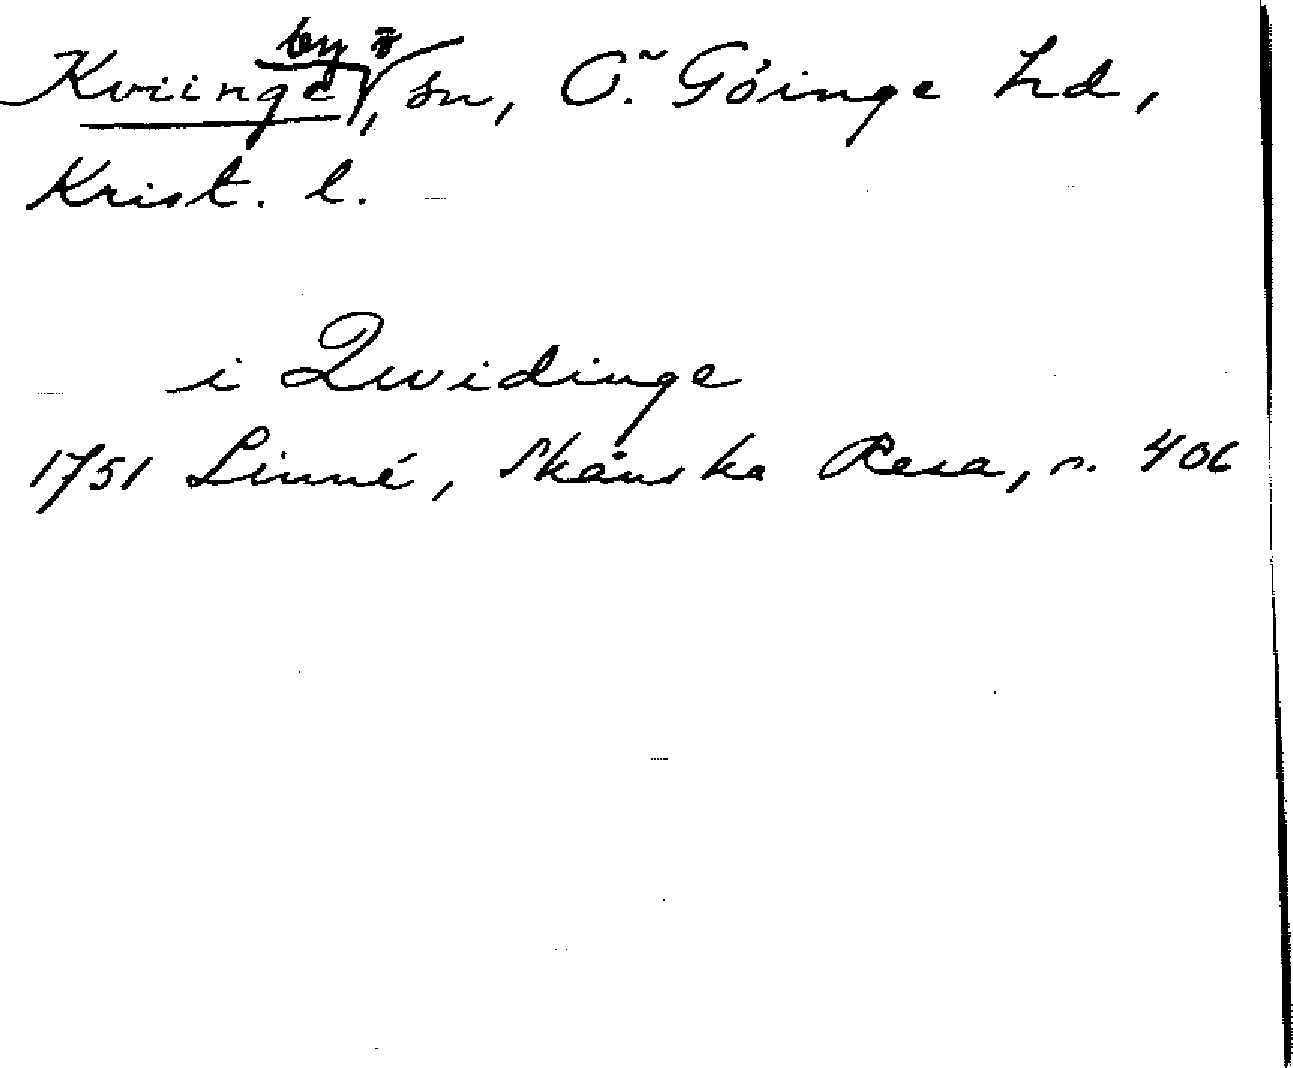 Kviinge, by i sn, Ö. Göinge hd,
Krist. l.
i Qwidinge
1751 Linné, Skånska Resa, s. 406